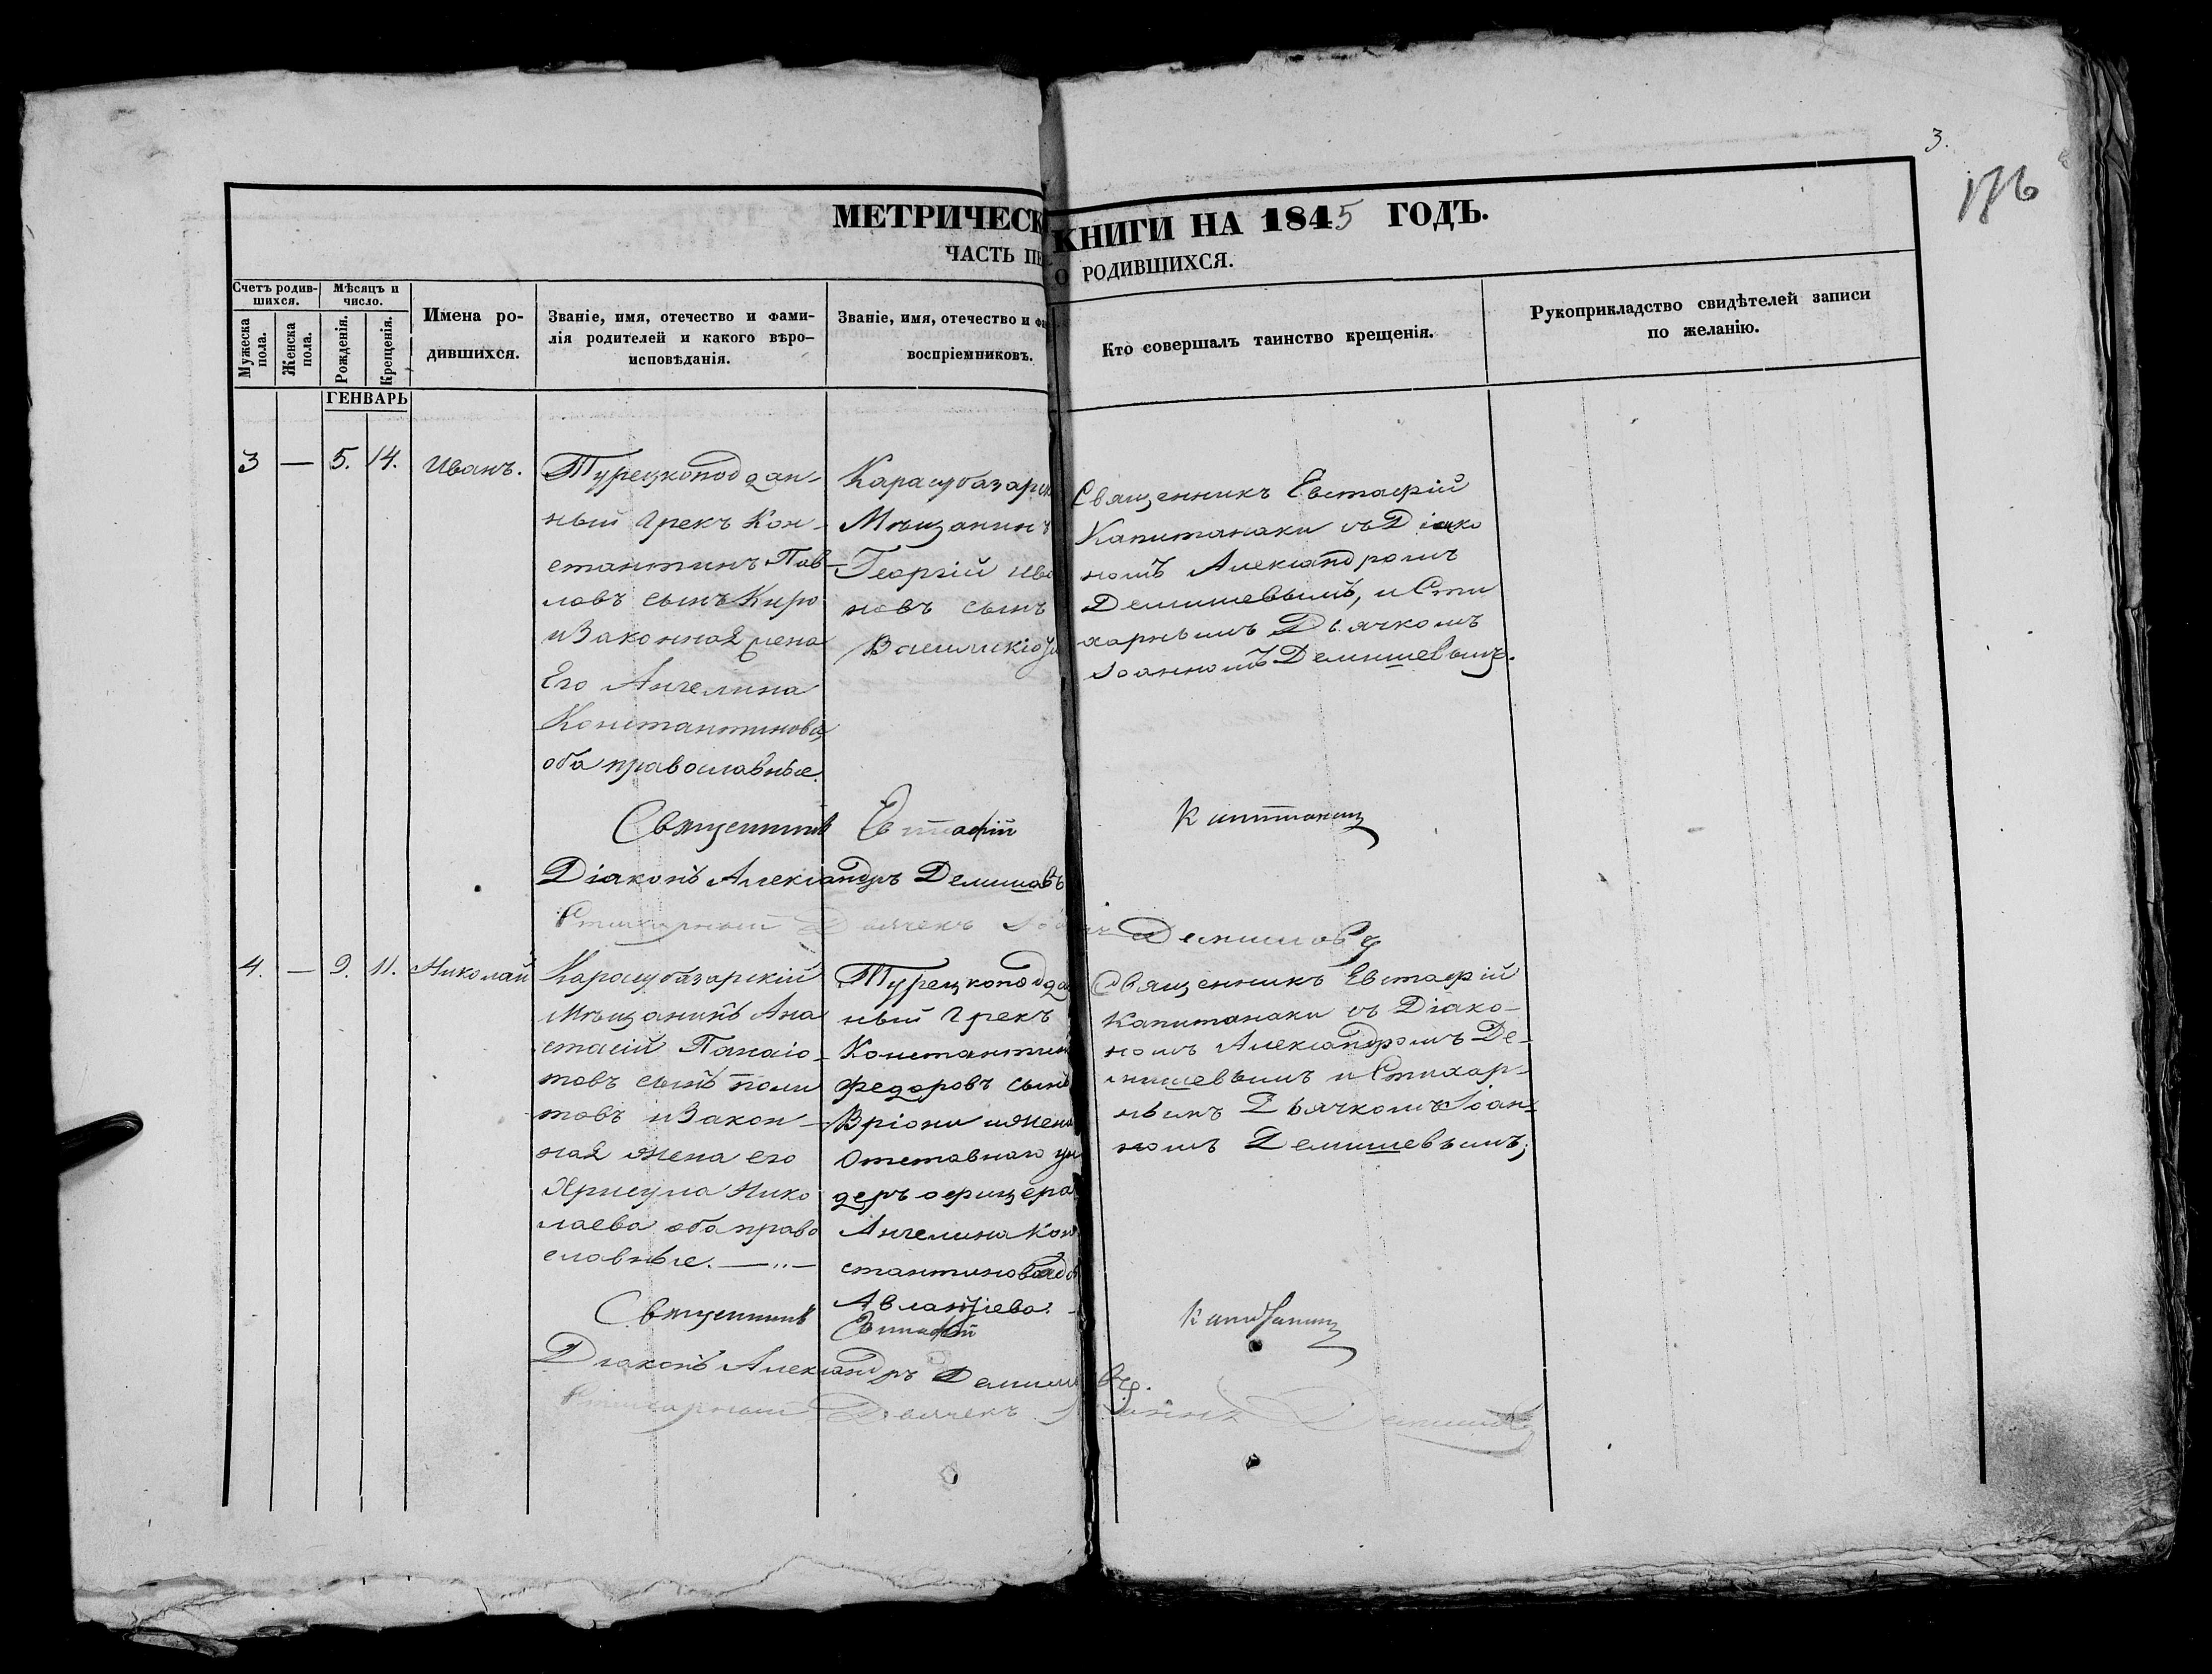 3.
176
МЕТРИЧЕСК КНИГИ НА 1845 ГОДЪ.
ЧАСТЬ ПЕ О РОДИВШИХСЯ.
Счетъ родив-
шихся.
Мужеска
пола.
Женска
пола.
Мѣсяцъ и
число.
Рожденія.
Крещенія.
Имена ро-
дившихся.
Званіе, имя, отечество и фами-
лія родителей и какого вѣро-
исповѣданія.
Званіе, имя, отечество и фа
воспріемниковъ.
Кто совершалъ таинство крещенія.
Рукоприкладство свидѣтелей записи
по желанію.
ГЕНВАРЬ
3 — 5. 14. Иванъ.
Турецкоподдан-
ный Грекъ Кон-
стантинъ Пав-
ловъ сынъ Киро
и Законная жена
Его Ангелина
Константинова,
оба православные.
Карасубазарск
Мѣщанинъ
Георгій Ива
новъ сынъ
Священникъ Евстафій
Капитанаки съ Діако
номъ Александромъ
Демишевымъ, и Сти
харнымъ Дьячкомъ
Іоанномъ Демишевымъ.
Священникъ Евстафій Капитанаки
Діаконъ Александръ Демишевъ
Стихарный Дьячекъ Демишевъ
4. — 9. 11. Николай
Карасубазарскій
Мѣщанинъ Ана
стасій Панаіо-
товъ сынъ Поли
товъ и Закон-
ная жена его
Хрисула Нико
лаева оба право
славные. —„—
Турецкоподдан
ный Грекъ
Константин
Федоровъ сынъ
Вріони и жена
Отставнаго ун
деръ офицера
Ангелина Кон
стантинова
Священникъ Евстафій
Капитанаки съ Діако-
номъ Александромъ Де-
мишевымъ и Стихар-
нымъ Дьячкомъ Іоан-
номъ Демишевымъ;
Священникъ Евстафій Капитанаки
Діаконъ Александръ Демишевъ.
Стихарный Дьячекъ Іоаннъ Демишевъ